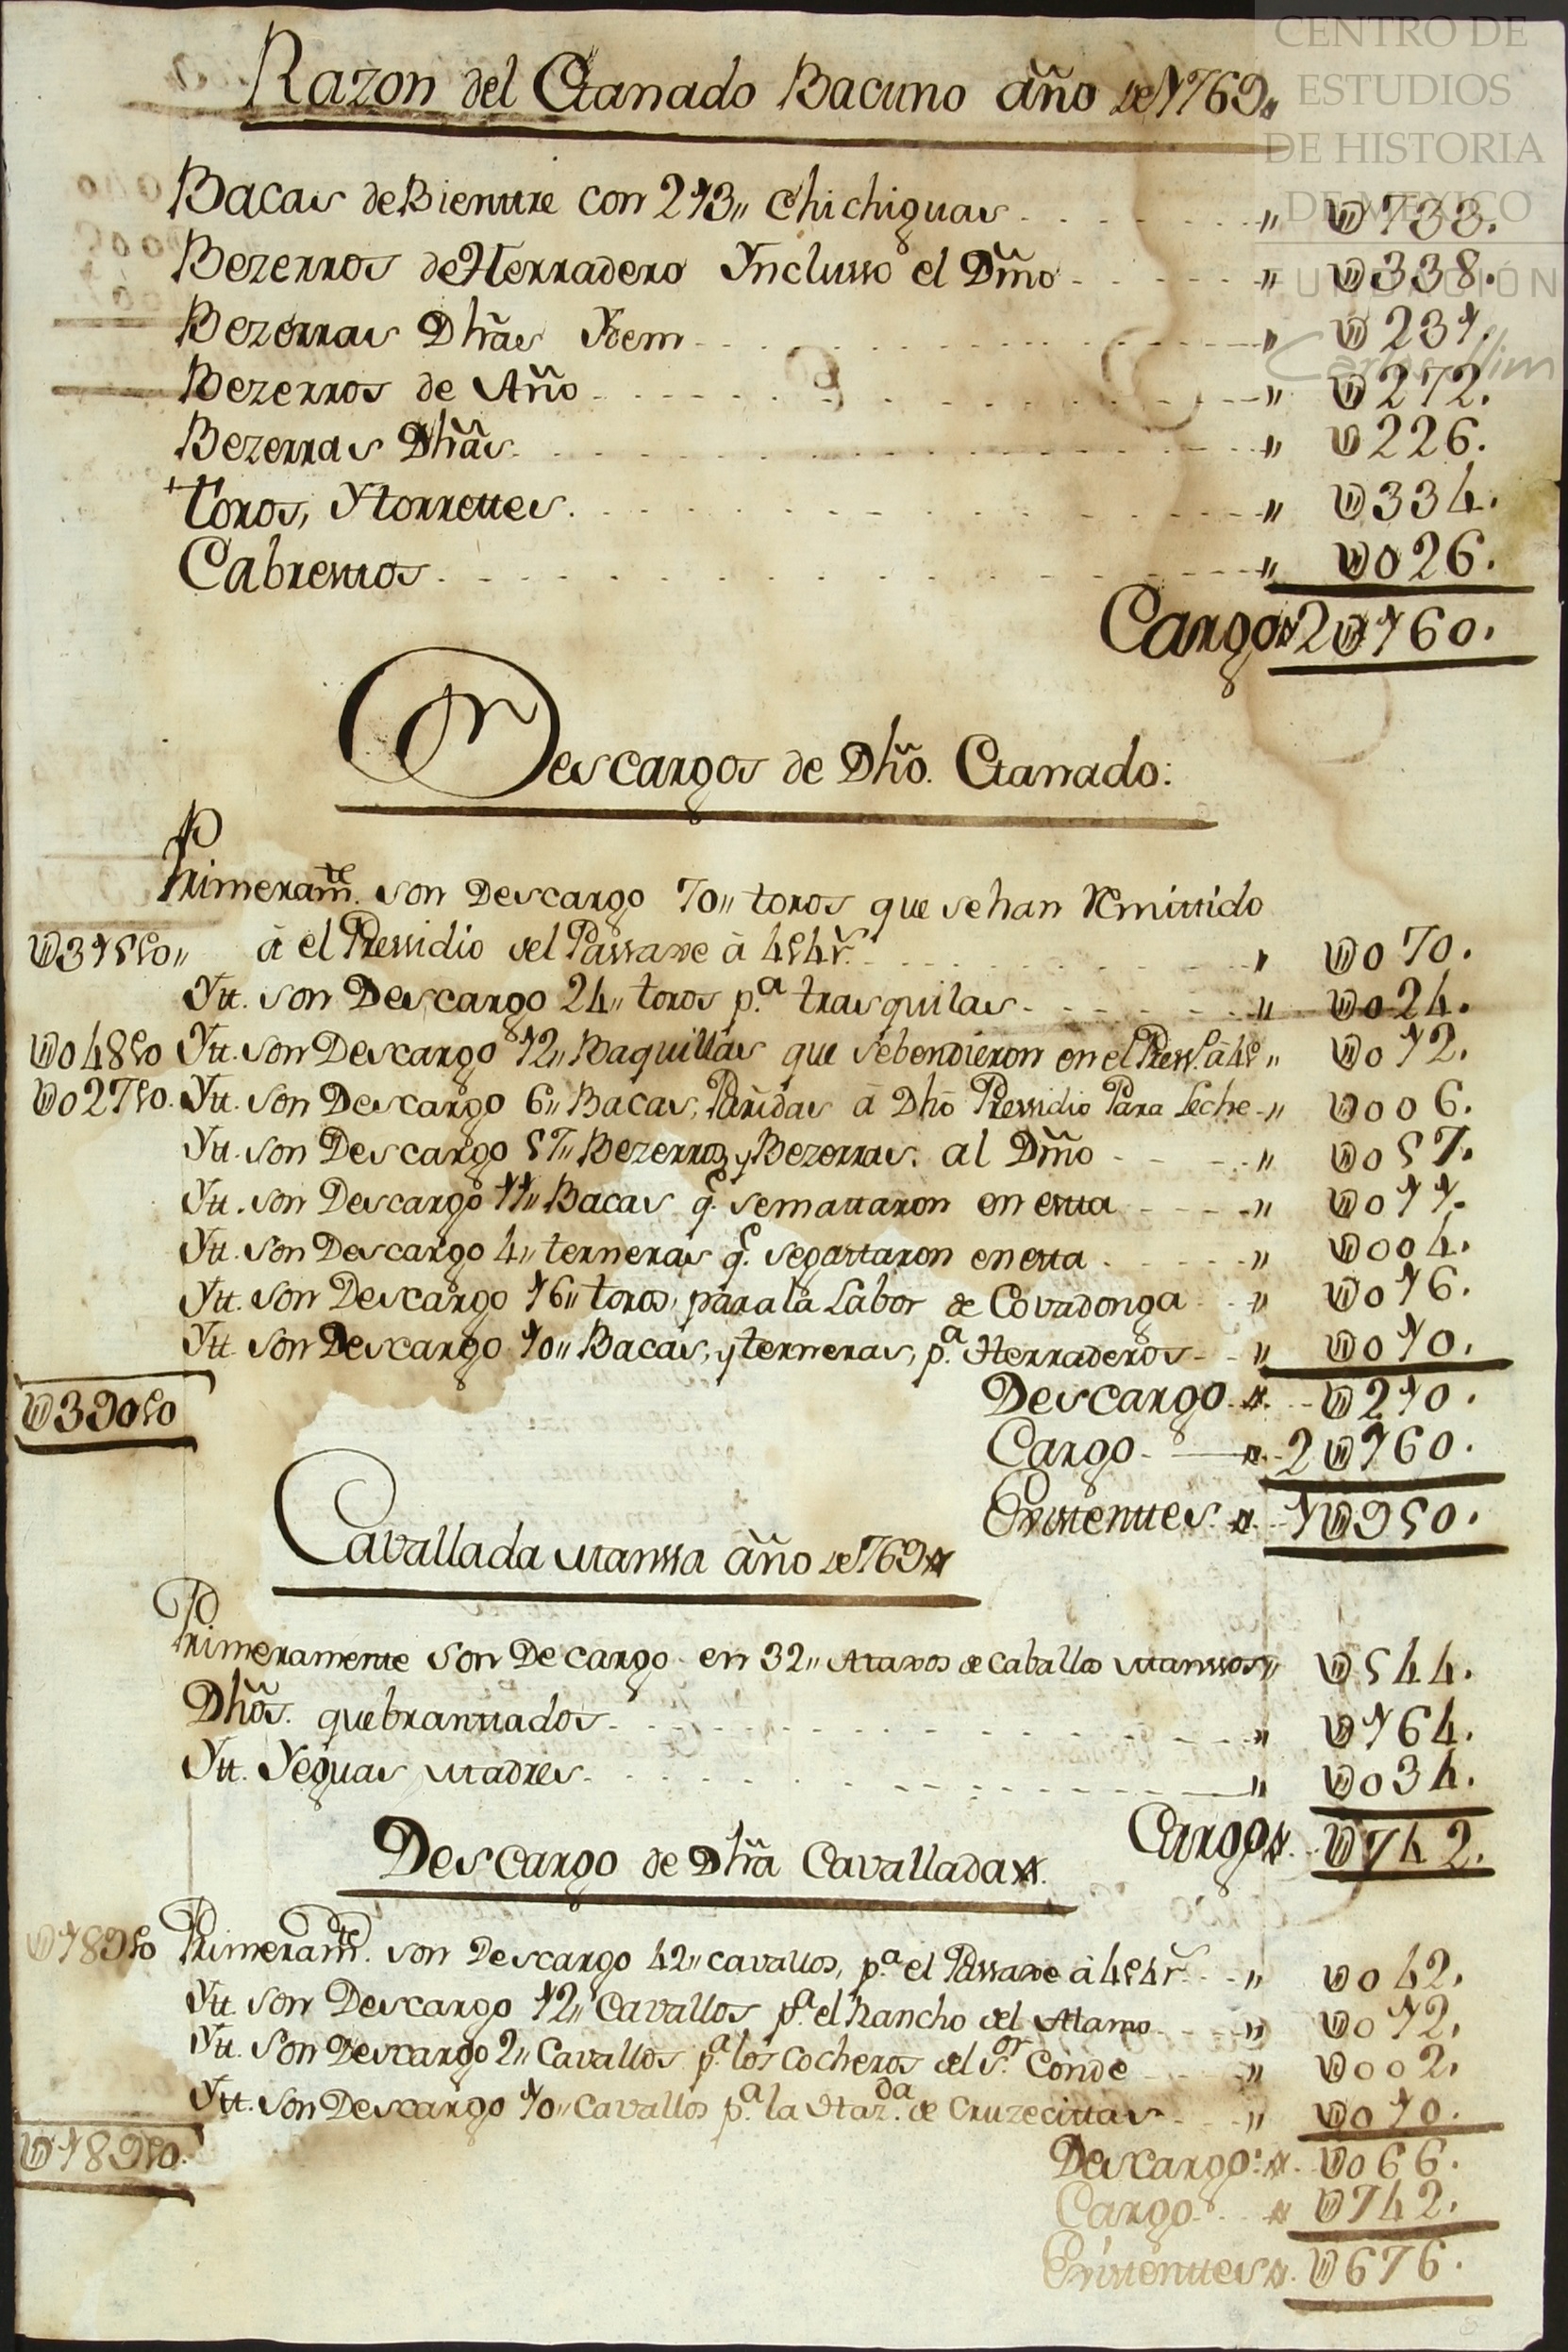 Razon del Ganado Bacuno año de 1769,,
Bacas de Bientre con 213,, chichiguas ,, U733.
Bezerros de Herradero Yncluso el Dm̃o ,, U338.
Bezerras Dhãs Ytem ,, U231.
Bezerros de Año ,, U272.
Bezerras Dhãs. ,, U226.
Toros, Y torrettes. ,, U334.
Cabrestos. ,, U026.
Cargo 2U160.
Descargos de Dhõ. Ganado:
Primeramte. son Descargo 70,, toros que se han Remitido
U315p0,, à el Pressidio del Passaxe à 4p4r̃. ,, U070.
Ytt. son Descargo 24,, toros p.a trasquilas. ,, U024.
U048p0 Ytt. son Descargo 12,, Baquillas que se bendieron en el Press.o à 4p ,, U012.
U027p0. Ytt. son Descargo 6,, Bacas, Paridas à Dhõ Pressidio Para Leche ,, U006.
Ytt. son Descargo 57,, Bezerros y Bezerras. al Dm̃o ,, U057.
Ytt. son Descargo 11,, Bacas q.e se mattaron en esta ,, U011.
Ytt. son Descargo 4,, terneras q.e se gastaron en esta ,, U004.
Ytt. son Descargo 16,, toros, para la Labor de Covadonga ,, U016.
Ytt. son Descargo 10,, Bacas, y terneras, p.a Herraderos ,, U010.
U390p0 Descargo U210.
Cargo 2U160.
Existenttes. 1U950.
Cavallada Manssa año de 769
Primeramente son De cargo en 32,, Ataxos de Caballos Manssos,, U544.
Dhõs. quebranttados ,, U164.
Ytt. Yeguas Madres. ,, U034.
Cargo U742.
Descargo de Dhã Cavallada.
U189p0 Primeramte. son Descargo 42,, cavallos, p.a el Passaxe à 4p4r̃. ,, U042.
Ytt. son Descargo 12,, Cavallos p.a el Rancho del Alamo ,, U012.
Ytt. son Descargo 2,, Cavallos p.a los cocheros del S.or Conde ,, U002.
Ytt. son Descargo 10,, Cavallos p.a la Haz.da de Cruzecittas ,, U010.
U189p0. Descargo: U066.
Cargo U742.
Existenttes U676.
CENTRO DE
ESTUDIOS
DE HISTORIA
DE MEXICO
FUNDACIÓN
Carlos Slim